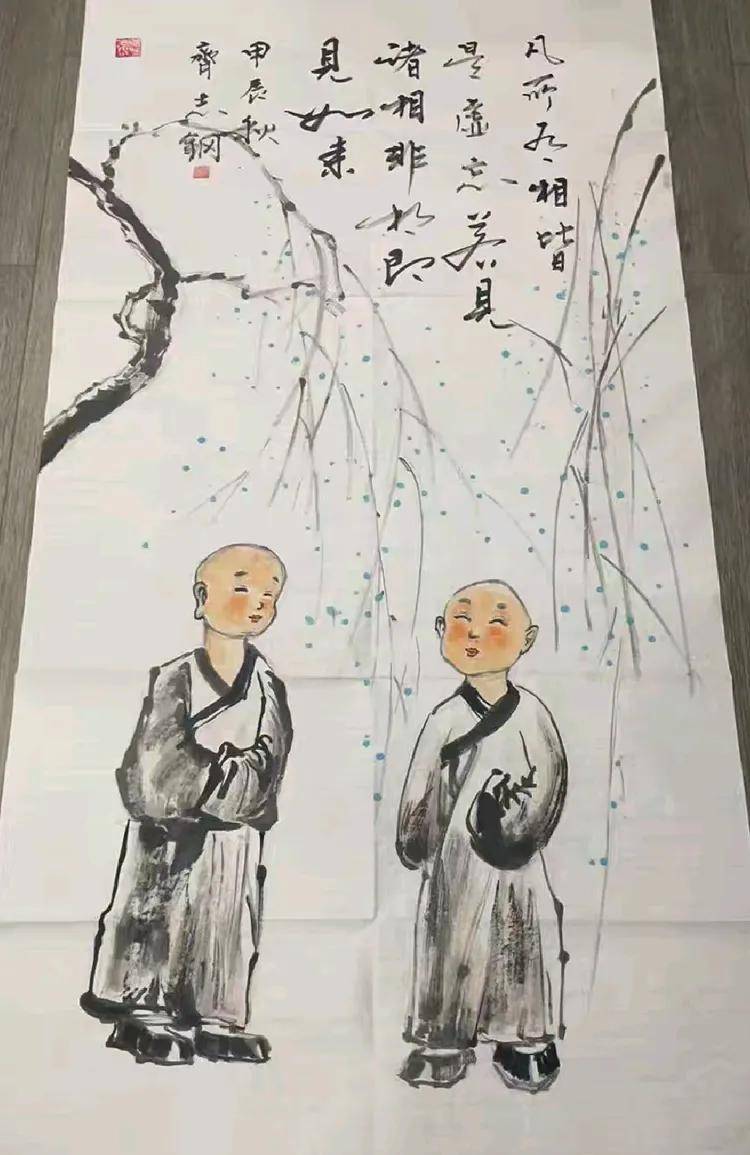 凡所有相皆
是虚忘若見
诸相非相即
見如来
甲辰秋
齊志鋼